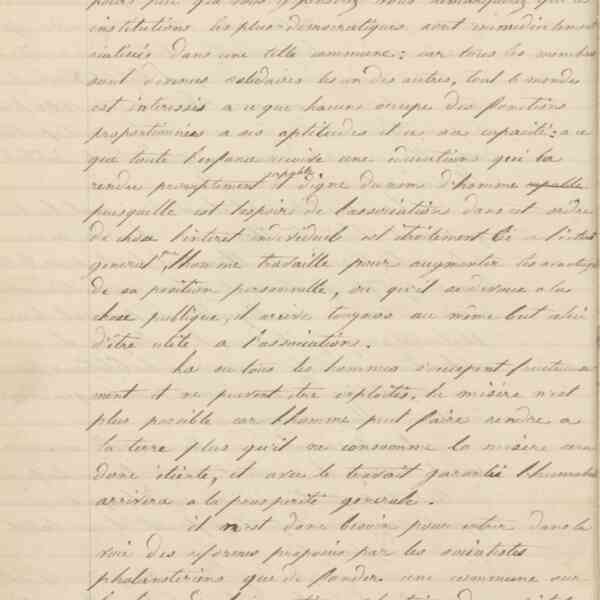 pour peu que vous y pensiez vous remarquerez que les
institutions les plus democratiques sont immediatement
realisées dans une telle commune: car tous les membres
sont devenus solidaires les un des autres, tout le monde
est interessés a ce que chacun occupe des fonctions
proportionnées a ses aptitudes et a sa capacité: a ce
que toute l'enfance recoive une education qui la
rendre promptement capable et digne du nom d'homme capable
puisqu'elle est l'espoir de l'association dans cet ordre
de chose l'interet individuel est etroitement lié a l'interet
general, l'homme travaille pour augmenter les avantages
de sa position personnelle, ou qu'il se devoue a la
chose publique, il arrive toujours au même but celui
d'être utile a l'association.
La ou tous les hommes s'occupent fructueuse
ment et ne peuvent être exploités, la misère n'est
plus possible car l'homme peut faire rendre a
la terre plus qu'il ne consomme la misère sera
donc eteinte, et avec le travail garanti l'humanité
arrivera a la prosperité generale.
il n'est donc besoin pour entrer dans la
voie des reformes proposées par les socialistes
phalansteriens que de fonder une commune sur